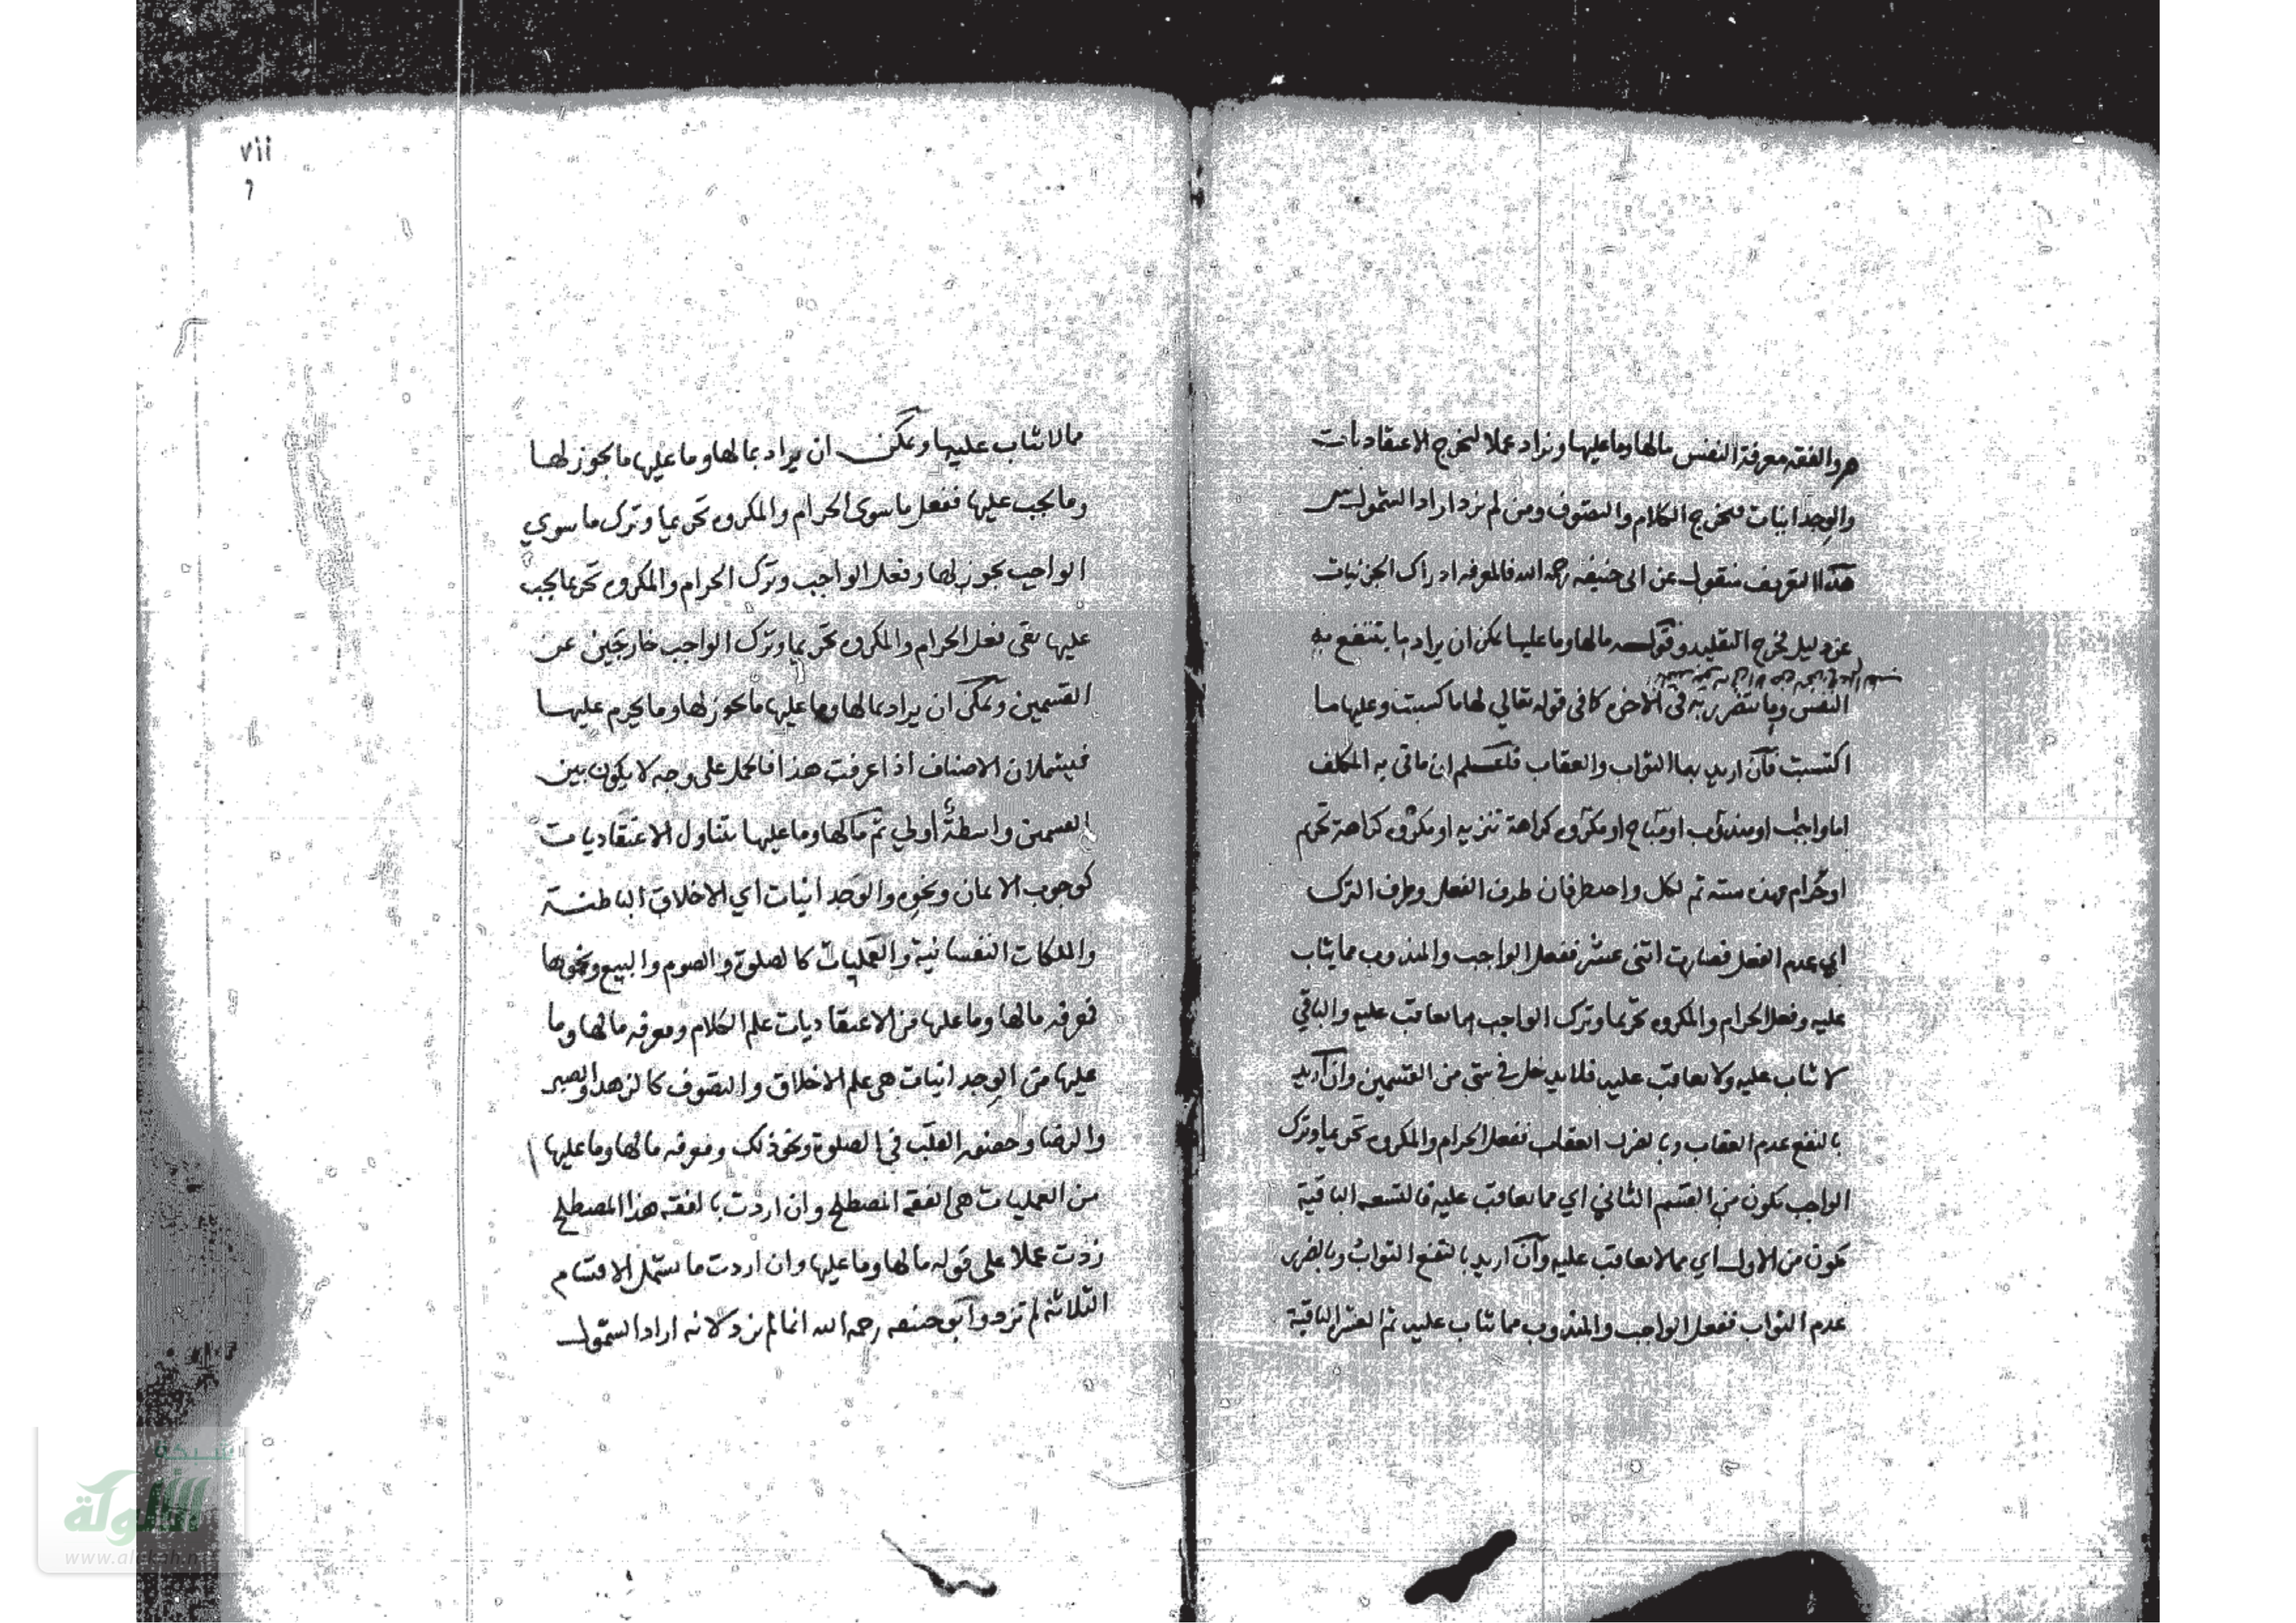 هو والفقه معرفة النفس مالها وما عليها ونزاد عملا لتخرج الاعتقاديات
والوجدانيات فيخرج الكلام والتصوف ومن لم يزد اراد الشمول
هذا التعريف منقول عن ابى حنيفه رحمه الله فالمعرفه ادراك الجزئيات
عن دليل فخرج التقليد وقوله مالها وما عليها يمكن ان يراد به ما ينتفع به
النفس وما يتضرر به فى الاخره كما فى قوله تعالي لها ما كسبت وعليها ما
اكتسبت فان اريد بهما الثواب والعقاب فاعلم ان ما ياتى به المكلف
اما واجب او مندوب او مباح او مكروه كراهة تنزيه او مكروه كراهة تحريم
او حرام فهذه سته ثم لكل واحد طرفان طرف الفعل وطرف الترك
اي عدم الفعل فصارت اثنى عشر ففعل الواجب والمندوب مما يثاب
عليه وفعل الحرام والمكروه تحريما وترك الواجب مما يعاقب عليه والباقي
لا يثاب عليه ولا يعاقب عليه فلا يدخل في شئ من القسمين وان اريد
بالنفع عدم العقاب وبالضرر العقاب ففعل الحرام والمكروه تحريما وترك
الواجب يكون من القسم الثاني اي مما يعاقب عليه فالتسعه الباقية
يكون من الاول اي مما لا يعاقب عليه وان اريد بالنفع الثواب وبالضرر
عدم الثواب ففعل الواجب والمندوب مما يثاب عليه ثم العشر الباقية
vii
٦
مما لا يثاب عليها ويمكن ان يراد بمالها وما عليها ما يجوز لها
وما يجب عليها ففعل ما سوى الحرام والمكروه تحريما وترك ما سوي
الواجب يجوز لها وفعل الواجب وترك الحرام والمكروه تحريما يجب
عليها بقى فعل الحرام والمكروه تحريما وترك الواجب خارجين عن
القسمين ويمكن ان يراد بمالها وما عليها ما يجوز لها وما يحرم عليها
فيشملان الاصناف اذا عرفت هذا فالحمل على وجه لا يكون بين
القسمين واسطة أولي ثم مالها وما عليها يتناول الاعتقاديات
كوجوب الايمان ونحوه والوجدانيات اي الاخلاق الباطنة
والملكات النفسانية والعمليات كالصلوة والصوم والبيع ونحوها
فمعرفه مالها وما عليها من الاعتقاديات علم الكلام ومعرفه مالها وما
عليها من الوجدانيات هى علم الاخلاق والتصوف كالزهد والصبر
والرضا وحضور القلب فى الصلوة ونحو ذلك ومعرفه مالها وما عليها
من العمليات هى الفقه المصطلح وان اردت بالفقه هذا المصطلح
زدت عملا على قوله مالها وما عليها وان اردت ما يشمل الاقسام
الثلاثه لم تزد وابو حنيفه رحمه الله انما لم يزد لانه اراد الشمول
شبكة
الألوكة